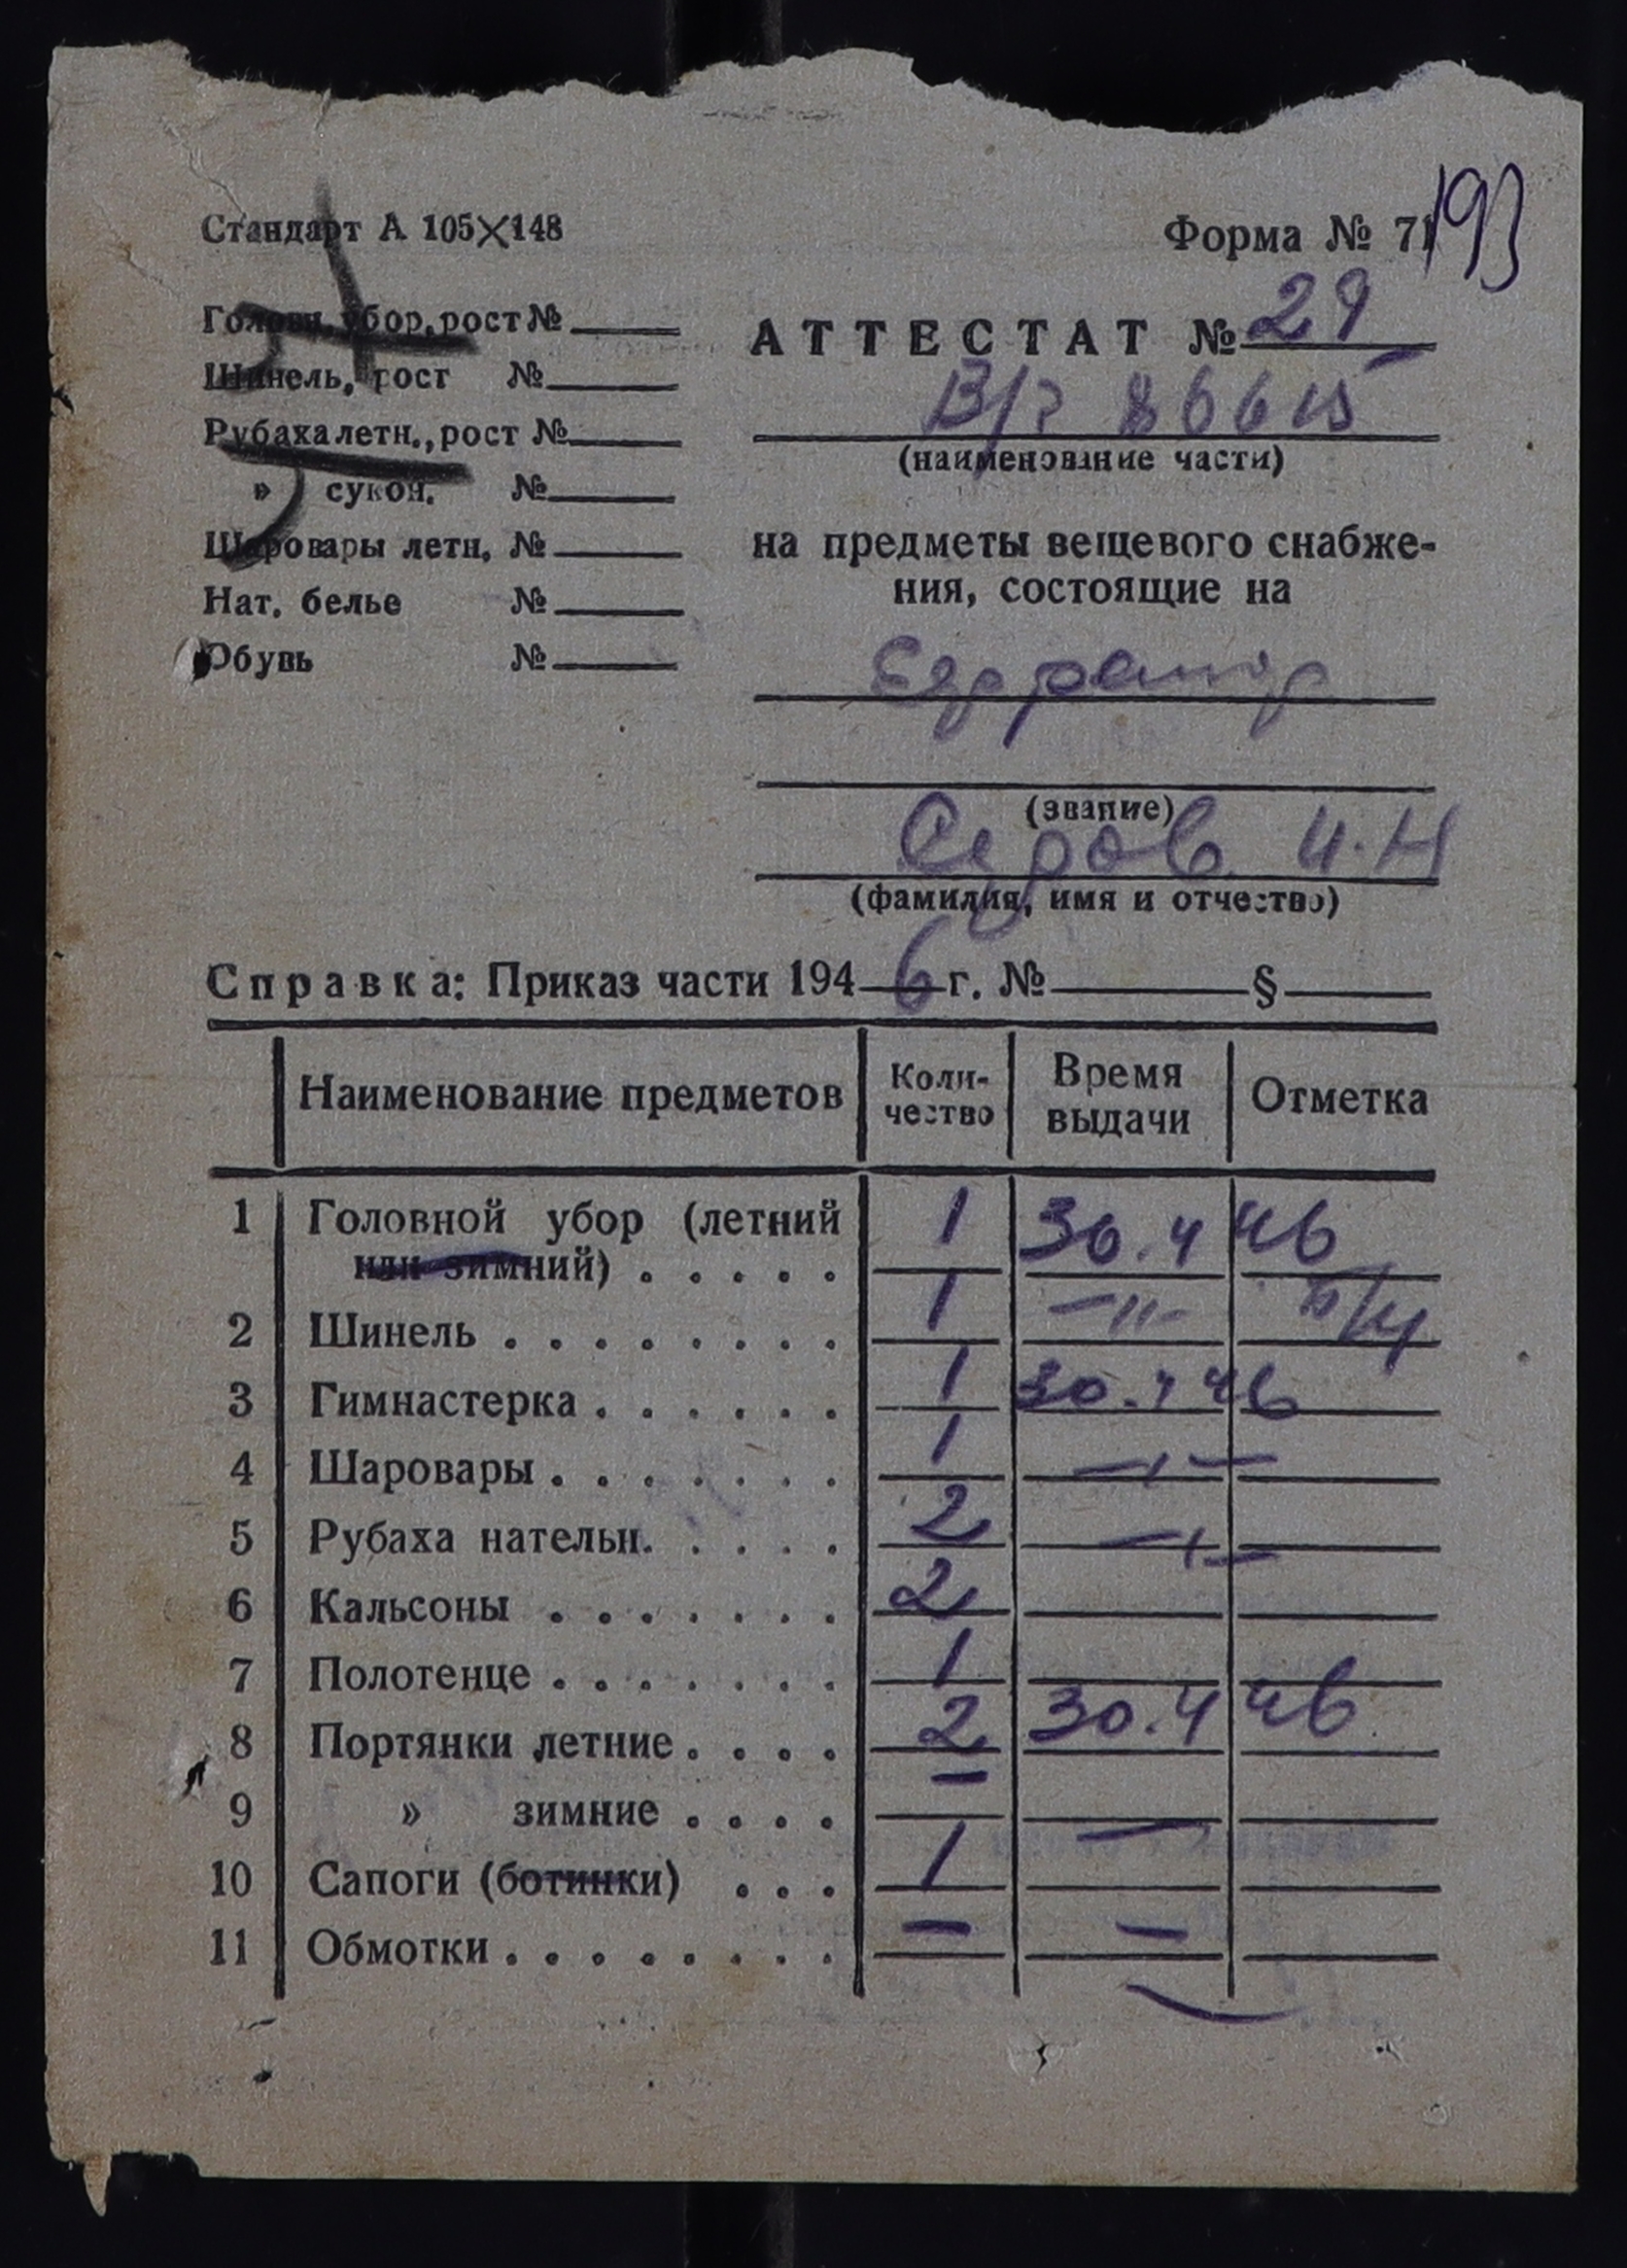 193
Стандарт А 105×148
Форма № 71
Головн. убор, рост №
Шинель, рост №
Рубаха летн., рост №
» сукон. №
Шаровары летн. №
Нат. белье №
Обувь №
АТТЕСТАТ № 29
В/ч 86615
(наименование части)
на предметы вещевого снабже-
ния, состоящие на
Ефрейтор
(звание)
Серов И.Н
(фамилия, имя и отчество)
Справка: Приказ части 1946 г. № §
Наименование предметов Коли-чество Время выдачи Отметка
1 Головной убор (летний
или зимний) . . . . . 1 30.4 46
2 Шинель . . . . . . . . 1 —"—
3 Гимнастерка . . . . . . 1 30.4 46
4 Шаровары . . . . . . . 1 —"—
5 Рубаха нательн. . . . . 2 —"—
6 Кальсоны . . . . . . . 2
7 Полотенце . . . . . . . 1
8 Портянки летние . . . . 2 30.4 46
9 » зимние . . . . — —
10 Сапоги (ботинки) . . . 1
11 Обмотки . . . . . . . . — —